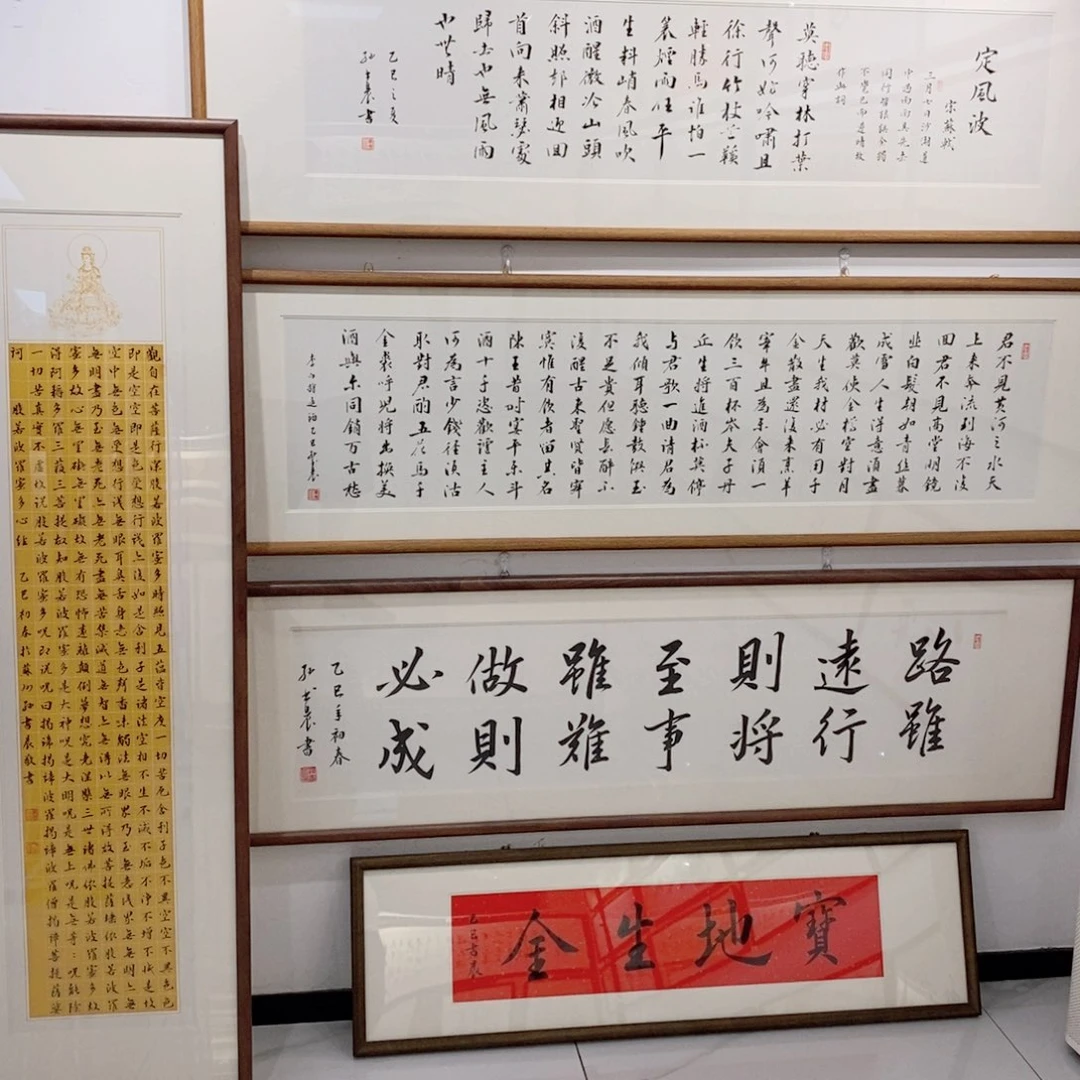 定風波
宋蘇軾
三月七日沙湖道
中遇雨雨具先去
同行皆狼狽余獨
不覺已而遂晴故
作此詞
莫聽穿林打葉
聲何妨吟嘯且
徐行竹杖芒鞋
輕勝馬誰怕一
蓑煙雨任平
生料峭春風吹
酒醒微冷山頭
斜照却相迎回
首向来蕭瑟處
歸去也無風雨
也無晴
乙巳之夏
孙書晨書
君不見黄河之水天
上来奔流到海不復
回君不見高堂明鏡
悲白髮朝如青丝暮
成雪人生得意須盡
歡莫使金樽空對月
天生我材必有用千
金散盡還復来烹羊
宰牛且為樂會須一
飲三百杯岑夫子丹
丘生將進酒杯莫停
与君歌一曲请君為
我傾耳聽鐘鼓饌玉
不足貴但愿長醉不
復醒古来聖賢皆寂
寞惟有飲者留其名
陳王昔时宴平樂斗
酒十千恣歡謔主人
何為言少錢徑須沽
取對君酌五花馬千
金裘呼兒將出換美
酒與尔同銷万古愁
李白將進酒乙巳書晨
路雖
遠行
則將
至事
雖難
做則
必成
乙巳年初春
孙书晨書
寶地生金
乙巳书晨
觀自在菩薩行深般若波羅蜜多時照見五蘊皆空度一切苦厄舍利子色不異空空不異色色
即是空空即是色受想行识亦復如是舍利子是諸法空相不生不滅不垢不淨不增不減是故
空中無色無受想行識無眼耳鼻舌身意無色聲香味觸法無眼界乃至無意识界無無明亦無
無明盡乃至無老死亦無老死盡無苦集滅道無智亦無得以無所得故菩提薩埵依般若波羅
蜜多故心無罣礙無罣礙故無有恐怖遠離顛倒夢想究竟涅槃三世諸佛依般若波羅蜜多故
得阿耨多羅三藐三菩提故知般若波羅蜜多是大神咒是大明咒是無上咒是無等〻咒能除
一切苦真實不虛故说般若波羅蜜多咒即说咒曰揭諦揭諦波羅揭諦波羅僧揭諦菩提薩婆
訶 般若波羅蜜多心經 乙巳初春於蘇州孙書晨敬書